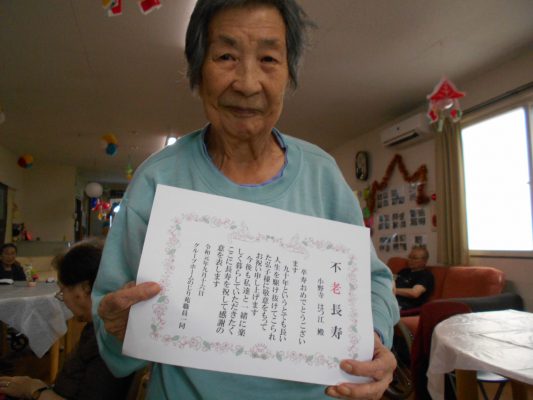 不老長寿
小野寺 はつ江 殿
卒寿おめでとうござい
ます
九十年というとても長い
人生を駆け抜けてこられ
た弘子様に敬意をもって
お祝い申し上げます
今後も私達と一緒に楽
しく暮らしていただきたく
ここに長寿を祝して感謝の
意を表します
令和元年九月十六日
グループホームのどり苑職員一同